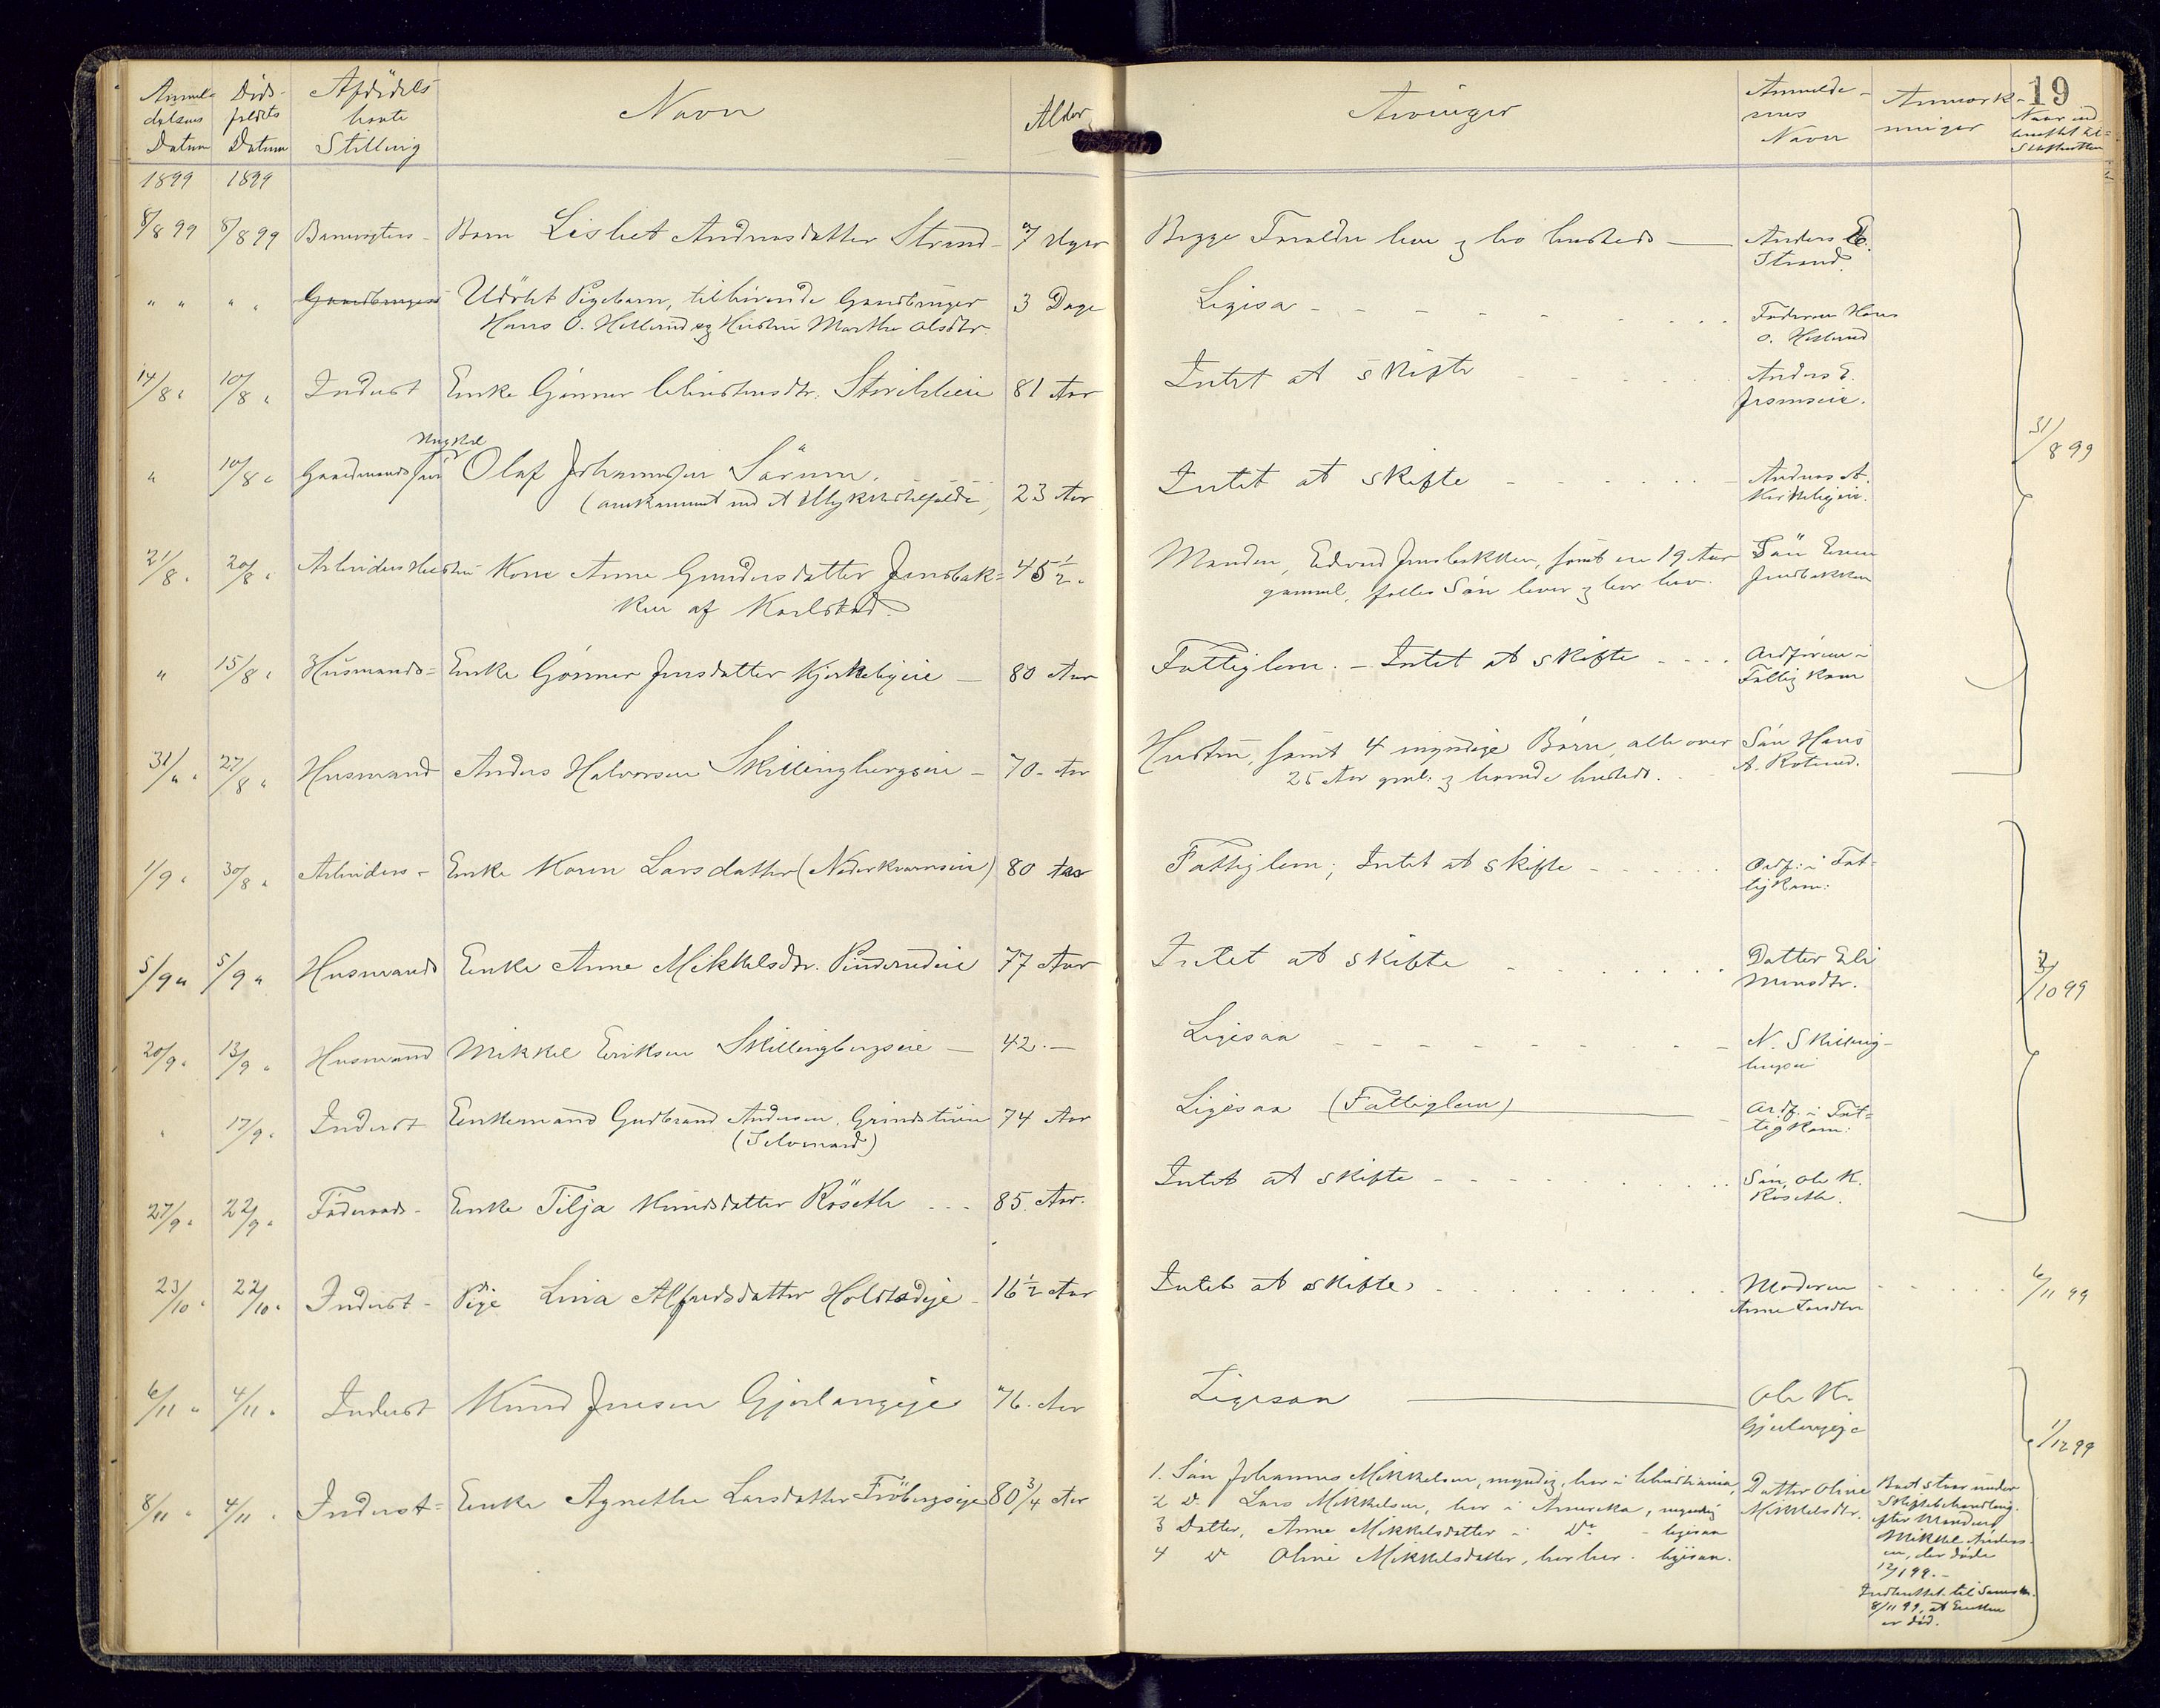 19
Anmel- Døds- Afdødes Navn Alder Arvinger Anmelde- Anmærk- Naar ind-
delsens faldets havte rens ninger berettet til
Datum Datum Stilling Navn Skifteretten
1899 1899
8/8 99 8/8 99 Banevogters- Barn Lisbet Andersdatter Strand 7 Uger Begge Forældre lever og bo husteds Anders E.
Strand.
" " " " Gaardbrugers Udöbt Pigebarn, tilhörende Gaardbruger 3 Dage Ligesa Faderen Hans
Hans O. Hellerud og Hustru Marthe Olsdtr. O. Hellerud
14/8 " 10/8 " Inderst Enke Gönner Christensdtr. 81 Aar Intet at skifte Anders E.
31/8 99
" 10/8 " Gaardmands Sön Ungkarl Olaf Johannesen Sörum. Intet at skifte Andreas A.
(omkommet ved et Ulykkestilfælde) 23 Aar Kirkebyeie.
21/8 " 20/8 " Arbeiders Hustru Kone Anne Gundersdatter Jensbak= 45 ½ " Manden, Edvard Jensbakken, samt en 19 Aar Sön Even
ken af Karlstad. gammel, fælles Sön lever og bor her. Jensbakken
" 15/8 " Husmands= Enke Gönner Jensdatter Kjerkebyeie 80 Aar Fattiglem. - Intet at skifte Ordföreren i
Fattigkom
31/8 " 27/8 " Husmand Anders Halvorsen Skillingbergseie 70 Aar Hustru, samt 4 myndige Börn, alle over Sön Hans
25 Aar gml. og boende husteds. A. Roterud.
1/9 " 30/8 " Arbeiders- Enke Karen Larsdatter (Nederkvernseie) 80 Aar Fattiglem; Intet at skifte Ordf. i Fat-
tigkom:
5/9 " 5/9 " Husmands Enke Anne Mikkelsdtr. Pinderudeie 77 Aar Intet at skifte Datter Eli
Monsdtr.
2/10 99
20/9 " 13/9 " Husmand Mikkel Eriksen Skillingbergseie 42 Ligesaa N. Skilling-
bergseie
" 17/9 " Inderst Enkemand Gudbrand Andersen, Grindstuen 74 Aar Ligesaa (Fattiglem) Ordf. i Fat-
(Selvmord) tigkom:
27/9 " 22/9 " Föderaads- Enke Tilja Knudsdatter Röseth 85 Aar. Intet at skifte Sön, Ole K.
Röseth.
23/10 " 22/10 " Inderst- Pige Lina Alfredsdatter Holstadeje 16 ½ Aar Intet at skifte Moderen 6/11 99
Anne
6/11 " 4/11 " Inderst Knud Jensen Gjerlaugeje 76 Aar Ligesaa Ole K.
Gjerlaugeje
1/12 99
8/11 " 4/11 " Inderst= Enke Agnethe Larsdatter Fröbergseje 80 ¾ Aar 1. Sön Johannes Mikkelsen, myndig, bor i Christiania, Datter Oline Boet staar under
2 Do Lars Mikkelsen, bor i Amerika, myndig Mikkelsdtr. Skiftebehandling.
3 Datter, Anne Mikkelsdatter i Do - ligesaa efter Manden
4 Do Oline Mikkelsdatter, bor her. ligesaa. Mikkel Anders-
en, der döde
12/1 99.-
Indberettet til
8/11 99, at Enken
er död.